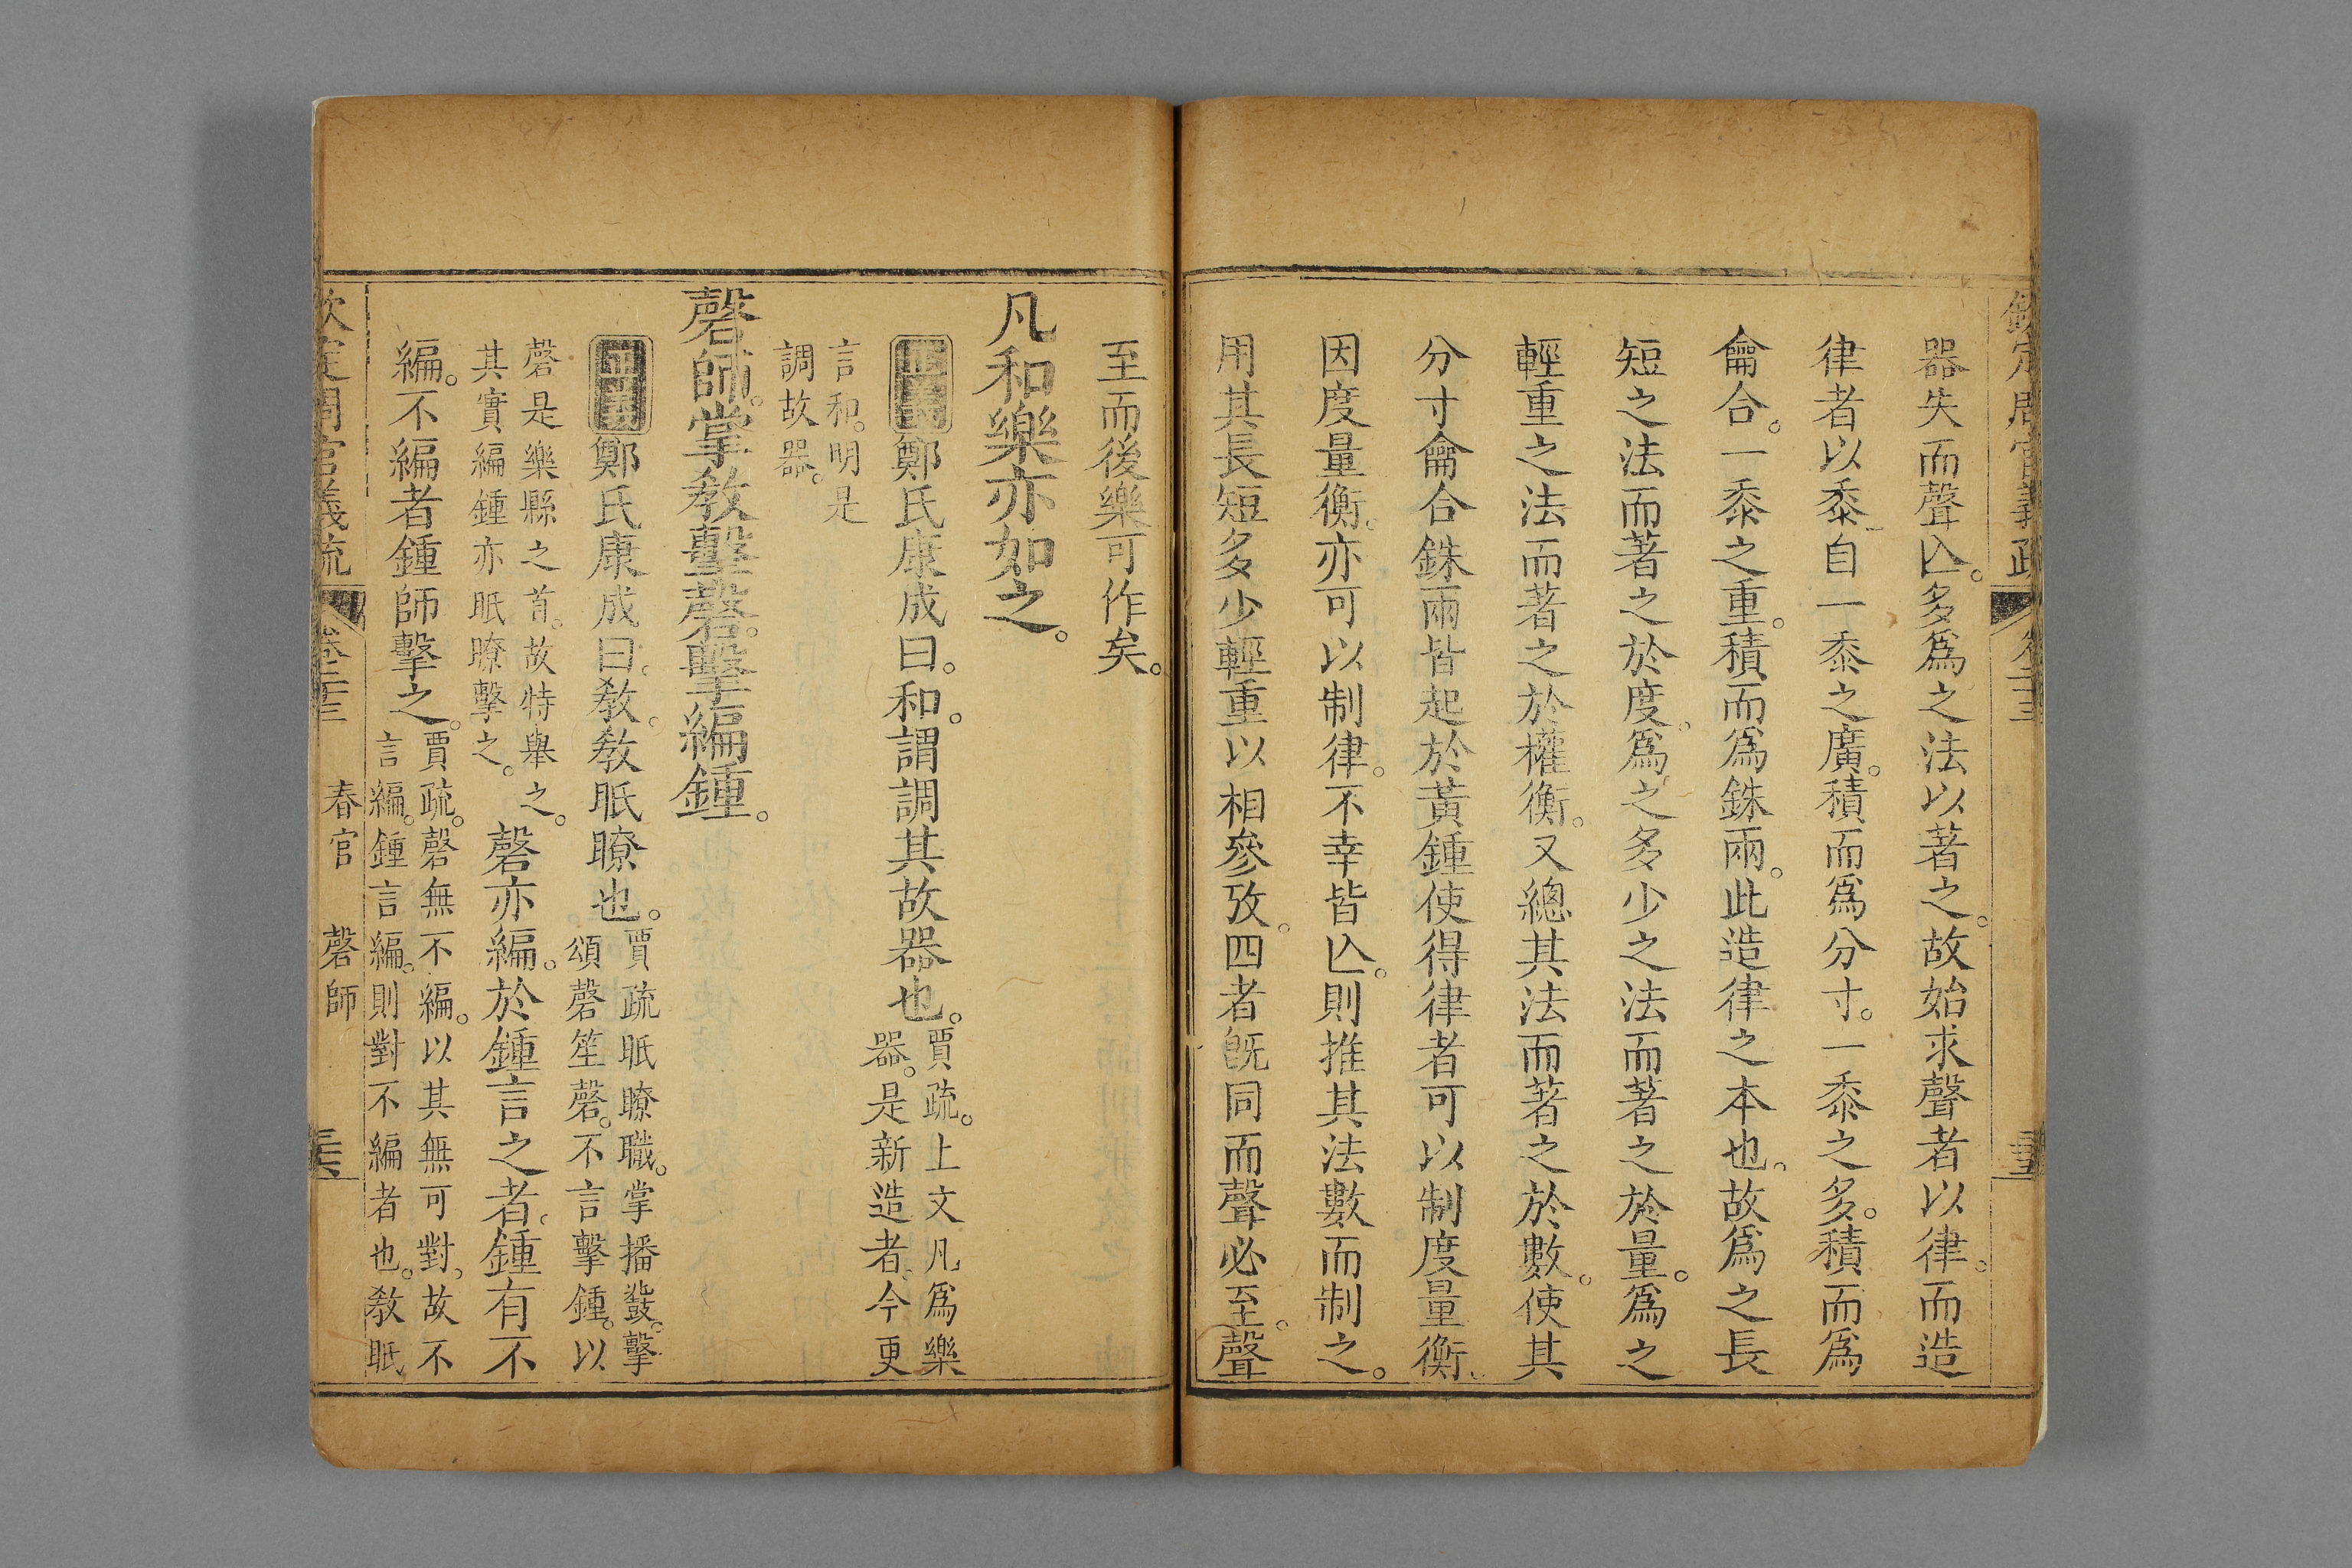 器失而聲亾。多爲之法以著之。故始求聲者以律。而造
律者以黍。自一黍之廣。積而爲分寸。一黍之多。積而爲
龠合。一黍之重。積而爲銖兩。此造律之本也。故爲之長
短之法而著之於度。爲之多少之法而著之於量。爲之
輕重之法而著之於權衡。又總其法而著之於數。使其
分寸龠合銖兩皆起於黃鍾使得律者可以制度量衡、
因度量衡。亦可以制律。不幸皆亾。則推其法數而制之。
用其長短多少輕重以相參攷。四者旣同而聲必至。聲
至而後樂可作矣。
凡和樂亦如之。
正義鄭氏康成曰。和。謂調其故器也。賈疏。上文凡爲樂
器。是新造者。今更
言和。明是
調故器。
磬師。掌敎擊磬。擊編鍾。
正義鄭氏康成曰。敎。敎眡瞭也。賈疏眡瞭職。掌播鼗。擊
頌磬笙磬。不言擊鍾。以
磬是樂縣之首。故特舉之。
其實編鍾亦眡瞭擊之。
磬亦編。於鍾言之者。鍾有不
編。不編者鍾師擊之。賈疏。磬無不編。以其無可對。故不
言編。鍾言編。則對不編者也。敎眡
欽定周官義疏 卷二十三 春官 磬師